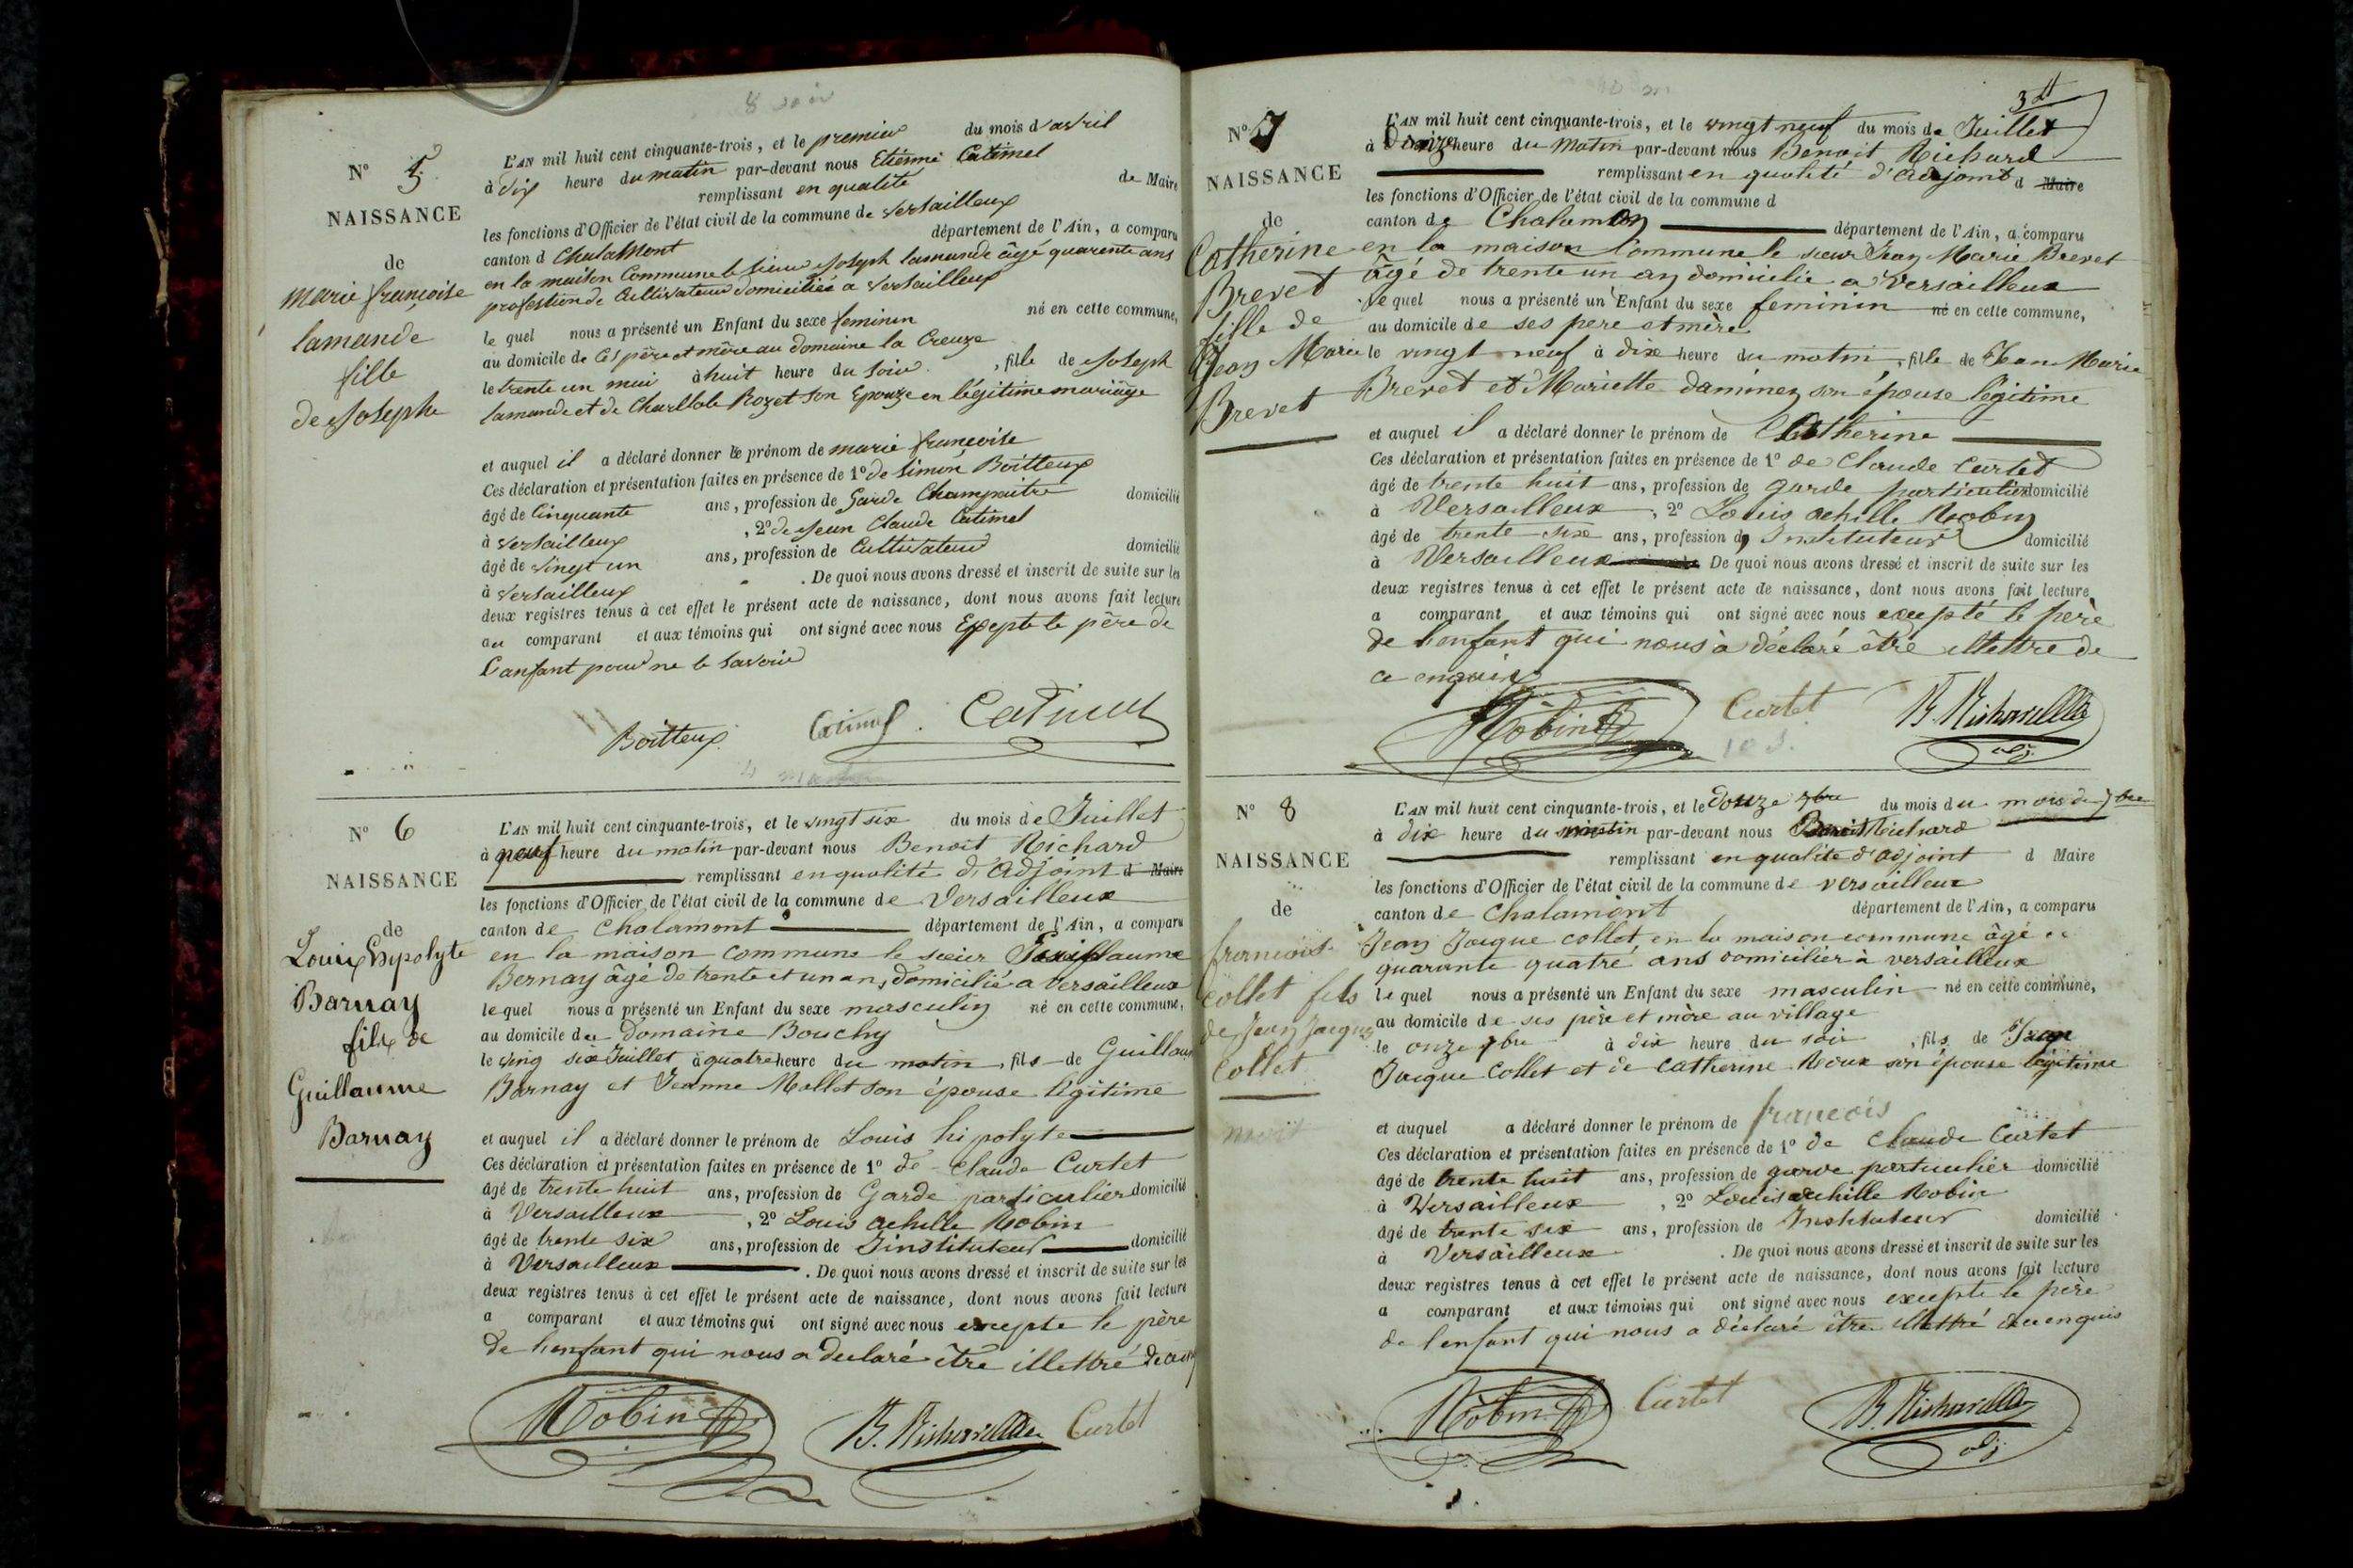 8 soir
N° 5
NAISSANCE
de
marie françoise
lamande
fille
de Joseph
L'AN mil huit cent cinquante-trois, et le premier du mois d'avril
à dix heure du matin par-devant nous Etienne Catimel
remplissant en qualité de Maire
les fonctions d'Officier de l'état civil de la commune de versailleux
canton d Chalamont département de l'Ain, a comparu
en la maison Commune le sieur Joseph lamande âgé quarente ans
profession de Cultivateur domicilié a versailleux
le quel nous a présenté un Enfant du sexe feminin né en cette commune,
au domicile de ces père et mère au domaine la Creuze
le trente un à huit heure du soir , fille de Joseph
lamande et de Rozet son Epouze en légitime mariage
et auquel il a déclaré donner le prénom de marie françoise
Ces déclaration et présentation faites en présence de 1° de simon Boitteux
âgé de Cinquante ans, profession de Garde Champaitre domicilié
à versailleux , 2° de Jean Claude Catimel
âgé de vingt un ans, profession de Cultivateur domicilié
à versailleux . De quoi nous avons dressé et inscrit de suite sur les
deux registres tenus à cet effet le présent acte de naissance, dont nous avons fait lecture
au comparant et aux témoins qui ont signé avec nous Excepte le père de
L'anfant pour ne le savoir
Boitteux Catimel Catimel
N° 6
NAISSANCE
de
Louis Hipolyte
Barnay
fils de
Guillaume
Barnay
L'AN mil huit cent cinquante-trois, et le vingt six du mois de Juillet
à neuf heure du matin par-devant nous Benoit Richard
remplissant en qualité d'Adjoint d Maire
les fonctions d'Officier de l'état civil de la commune de Versailleux
canton de Chalamont département de l'Ain, a comparu
en la maison commune le sieur Guillaume
Bernay âgé de trente et un an, domicilié a Versailleux
lequel nous a présenté un Enfant du sexe masculin né en cette commune,
au domicile du Domaine Bouchy
le ving six Juillet à quatre heure du matin , fils de Guillaume
Barnay et Jeanne Mollet son épouse légitime
et auquel il a déclaré donner le prénom de Louis hipolyte
Ces déclaration et présentation faites en présence de 1° de Claude Curtet
âgé de trente huit ans, profession de Garde particulier domicilié
à Versailleux , 2° Louis achille Robin
âgé de trente six ans, profession de Jinstituteur domicilié
à Versailleux . De quoi nous avons dressé et inscrit de suite sur les
deux registres tenus à cet effet le présent acte de naissance, dont nous avons fait lecture
a comparant et aux témoins qui ont signé avec nous excepte le père
de l'enfant qui nous a déclaré être illettré de ce enq
Robin B. Richard Curtet
N° 7
NAISSANCE
de
Catherine
Brevet
fille de
Jean Marie
Brevet
L'AN mil huit cent cinquante-trois, et le vingt neuf du mois de Juillet
à heure du Matin par-devant nous Benoit Richard
remplissant en qualité d'adjoint d Maire
les fonctions d'Officier de l'état civil de la commune d
canton de Chalamon département de l'Ain, a comparu
en la maison Commune le sieur Jean Marie Brevet
âgé de trente un an domicilié a Versailleux
Le quel nous a présenté un Enfant du sexe feminin né en cette commune,
au domicile de ses pere et mère
le vingt neuf à dix heure du matin , fille de Jean Marie
Brevet et Mariette Daminez son épouse légitime
et auquel il a déclaré donner le prénom de Catherine
Ces déclaration et présentation faites en présence de 1° de Claude Curtet
âgé de trente huit ans, profession de garde particulier domicilié
à Versailleux , 2° Louis achille Robin
âgé de trente six ans, profession d Instituteur domicilié
à Versailleux De quoi nous avons dressé et inscrit de suite sur les
deux registres tenus à cet effet le présent acte de naissance, dont nous avons fait lecture
a comparant et aux témoins qui ont signé avec nous excepté le père
de l'enfant qui nous à déclaré être illettre de
ce enquis
Robin Curtet B. Richard
adj
N° 8
NAISSANCE
de
francois
Collet fils
de Jean Jacque
Collet
mort
L'AN mil huit cent cinquante-trois, et le douze 7bre du mois du mois de 7bre
à dix heure du matin par-devant nous Benoit Richard
remplissant en qualité d'adjoint d Maire
les fonctions d'Officier de l'état civil de la commune de versailleux
canton de Chalamont département de l'Ain, a comparu
Jean Jacque collet en la maison commune âgé de
quarante quatre ans domicilier à versailleux
le quel nous a présenté un Enfant du sexe masculin né en cette commune,
au domicile de ses père et mère au village
le onze 7bre à dix heure du soir , fils de Jean
Jacque Collet et de Catherine Roux son épouse légitime
et auquel a déclaré donner le prénom de francois
Ces déclaration et présentation faites en présence de 1° de Claude Curtet
âgé de trente huit ans, profession de garde particulier domicilié
à Versailleux , 2° Louis achille Robin
âgé de trente six ans, profession de Instituteur domicilié
à Versailleux . De quoi nous avons dressé et inscrit de suite sur les
deux registres tenus à cet effet le présent acte de naissance, dont nous avons fait lecture
a comparant et aux témoins qui ont signé avec nous excepte le père
de l'enfant qui nous a déclaré être illettré de ce enquis
Robin Curtet B. Richard
adj